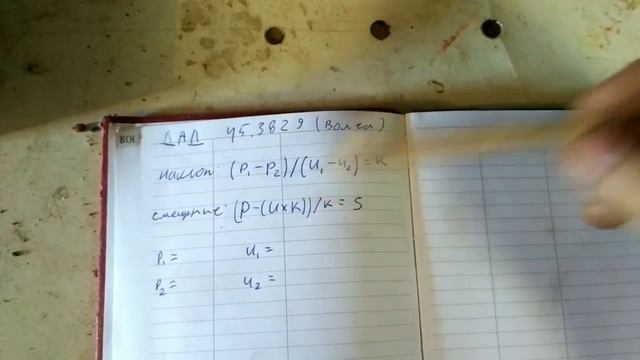 ДАД 45.3829 (Волга)
наклон: (P₁-P₂)/(U₁-U₂)=K
смещение: (P-(U×K))/K=S
P₁= U₁=
P₂= U₂=